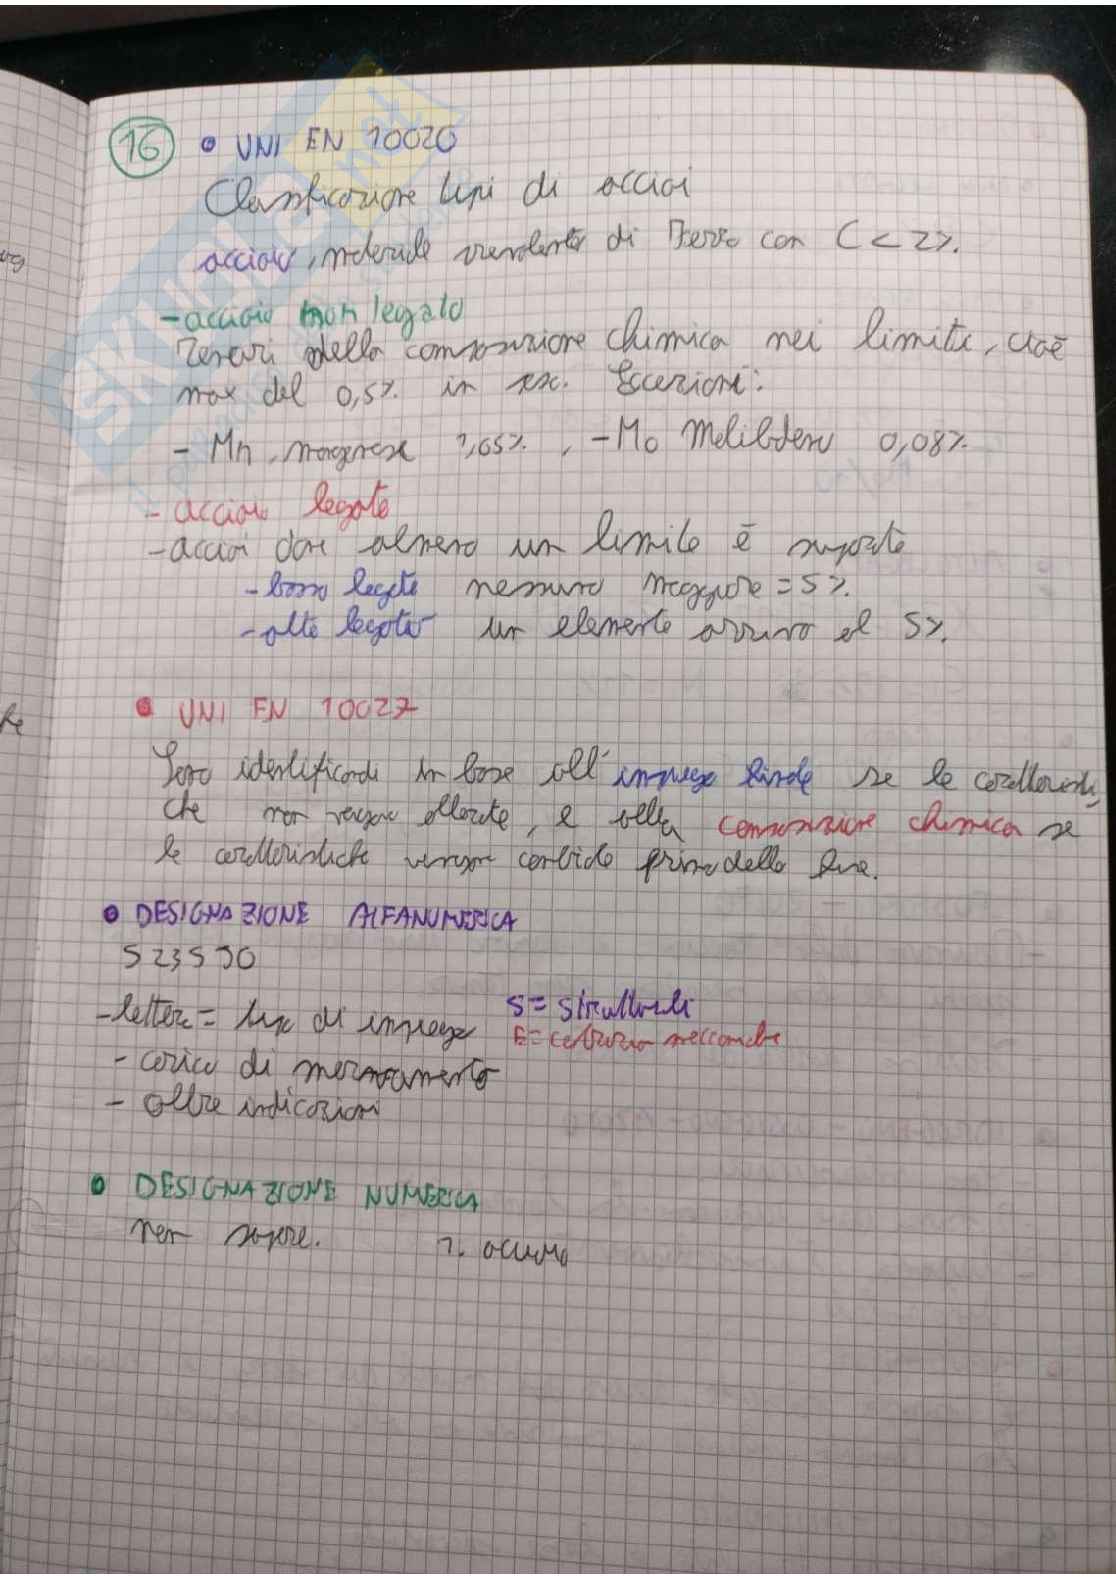 16 • UNI EN 10020
Classificazione tipi di acciai
acciaio, materiale prevalente di Ferro con C < 2%.
- acciaio non legato
Tenori della composizione chimica nei limiti, cioè
max del 0,5% in Eccezioni:
- Mn, manganese 1,65%, - Mo Molibdeno 0,08%
- acciaio legato
- acciai dove almeno un limite è superato
- basso legati nessuno maggiore = 5%.
- alto legati un elemento arriva al 5%.
• UNI EN 10027
Sono identificati in base all'impiego finale se le caratteristi,
che non vengono alterate, e alla composizione chimica se
le caratteristiche vengono cambiate prima della fine.
• DESIGNAZIONE ALFANUMERICA
S235J0
- lettere = tipo di impiego S = strutturali
E = costruzioni meccaniche
- carico di snervamento
- altre indicazioni
• DESIGNAZIONE NUMERICA
non sapere. 1. acciaio
SKUOLA.net